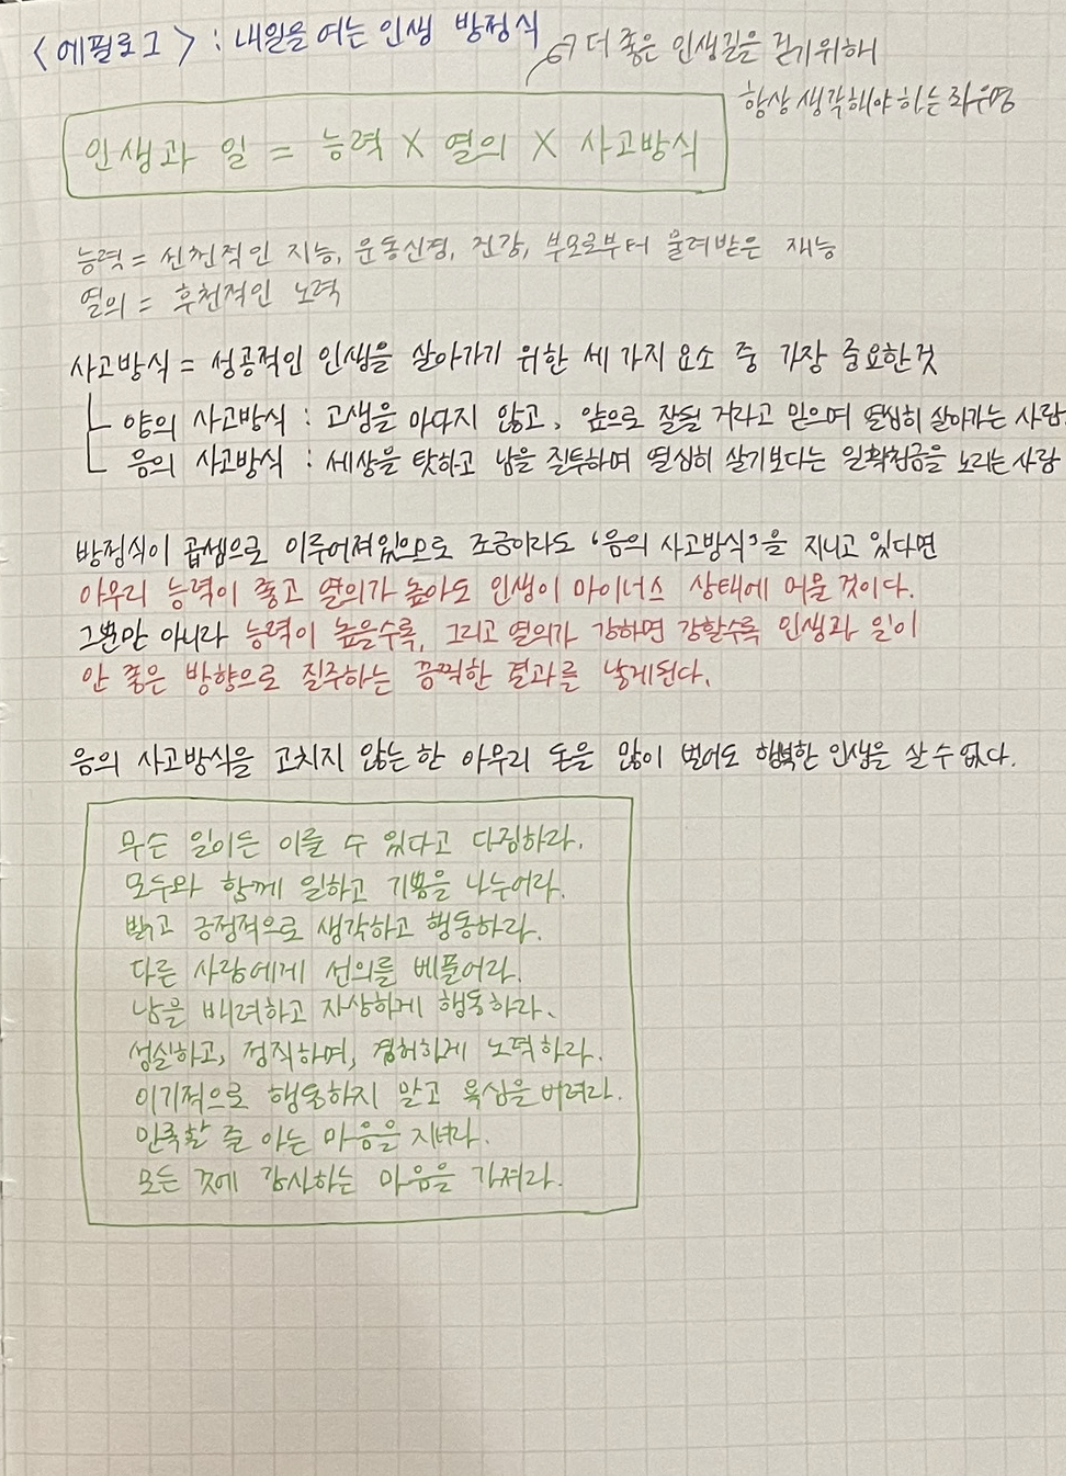 <에필로그> : 내일을 여는 인생 방정식
더 좋은 인생길을 걷기위해
항상 생각해야하는 좌우명
인생과 일 = 능력 X 열의 X 사고방식
능력 = 선천적인 지능, 운동신경, 건강, 부모로부터 물려받은 재능
열의 = 후천적인 노력
사고방식 = 성공적인 인생을 살아가기 위한 세 가지 요소 중 가장 중요한것
양의 사고방식 : 고생을 마다지 않고, 앞으로 잘될 거라고 믿으며 열심히 살아가는 사람
음의 사고방식 : 세상을 탓하고 남을 질투하며 열심히 살기보다는 일확천금을 노리는 사람
방정식이 곱셈으로 이루어져있으므로 조금이라도 '음의 사고방식'을 지니고 있다면
아무리 능력이 좋고 열의가 높아도 인생이 마이너스 상태에 머물 것이다.
그뿐만 아니라 능력이 높을수록, 그리고 열의가 강하면 강할수록 인생과 일이
안 좋은 방향으로 질주하는 끔찍한 결과를 낳게된다.
음의 사고방식을 고치지 않는 한 아무리 돈을 많이 벌어도 행복한 인생을 살 수 없다.
무슨 일이든 이룰 수 있다고 다짐하라.
모두와 함께 일하고 기쁨을 나누어라.
밝고 긍정적으로 생각하고 행동하라.
다른 사람에게 선의를 베풀어라.
남을 배려하고 자상하게 행동하라.
성실하고, 정직하며, 겸허하게 노력하라.
이기적으로 행동하지 말고 욕심을 버려라.
만족할 줄 아는 마음을 지녀라.
모든 것에 감사하는 마음을 가져라.